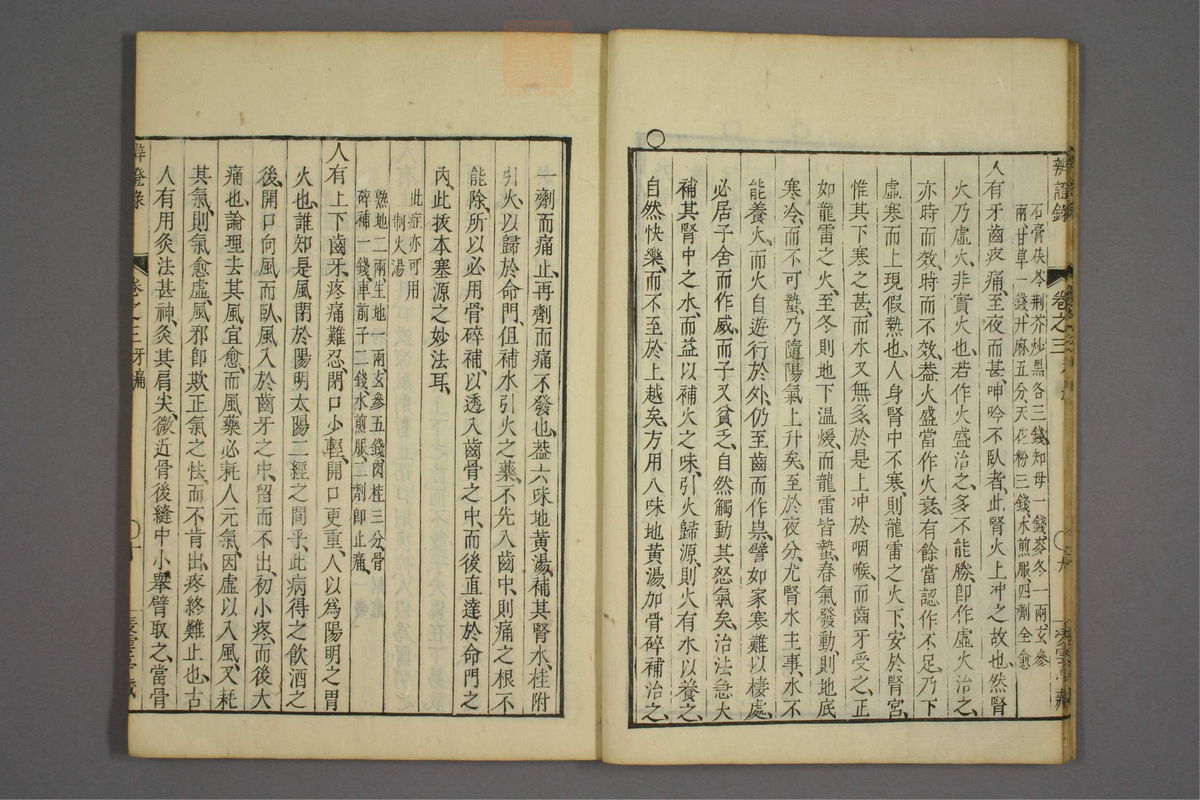 辨證錄 卷之三
石膏茯苓荆芥炒黑各三錢知母一錢麥冬一兩玄參
兩甘草一錢升麻五分天花粉三錢水煎服四劑全愈
人有牙齒疼痛至夜而甚呻吟不臥者此腎火上冲之故也然腎
火乃虛火非實火也若作火盛治之多不能勝卽作虛火治之
亦時而效時而不效蓋火盛當作火衰有餘當認作不足乃下
虛寒而上現假熱也人身腎中不寒則龍雷之火下安於腎宮
惟其下寒之甚而水又無多於是上冲於咽喉而齒牙受之正
如龍雷之火至冬則地下溫煖而龍雷皆蟄春氣發動則地底
寒冷而不可蟄乃隨陽氣上升矣至於夜分尤腎水主事水不
能養火而火自遊行於外仍至齒而作祟譬如家寒難以棲處
必居子舍而作威而子又貧乏自然觸動其怒氣矣治法急大
補其腎中之水而益以補火之味引火歸源則火有水以養之
自然快樂而不至於上越矣方用八味地黃湯加骨碎補治之
一劑而痛止再劑而痛不發也蓋六味地黃湯補其腎水桂附
引火以歸於命門但補水引火之藥不先入齒中則痛之根不
能除所以必用骨碎補以透入齒骨之中而後直達於命門之
內此拔本塞源之妙法耳
此症亦可用
制火湯
熟地二兩生地一兩玄參五錢肉桂三分骨
碎補一錢車前子二錢水煎服二劑卽止痛
人有上下齒牙疼痛難忍閉口少輕開口更重人以爲陽明之胃
火也誰知是風閉於陽明太陽二經之間乎此病得之飲酒之
後開口向風而臥風入於齒牙之中留而不出初小疼而後大
痛也論理去其風宜愈而風藥必耗人元氣因虛以入風又耗
其氣則氣愈虛風邪卽欺正氣之怯而不肯出疼終難止也古
人有用灸法甚神灸其肩尖微近骨後縫中小擧臂取之當骨
辨證錄 卷之三牙痛